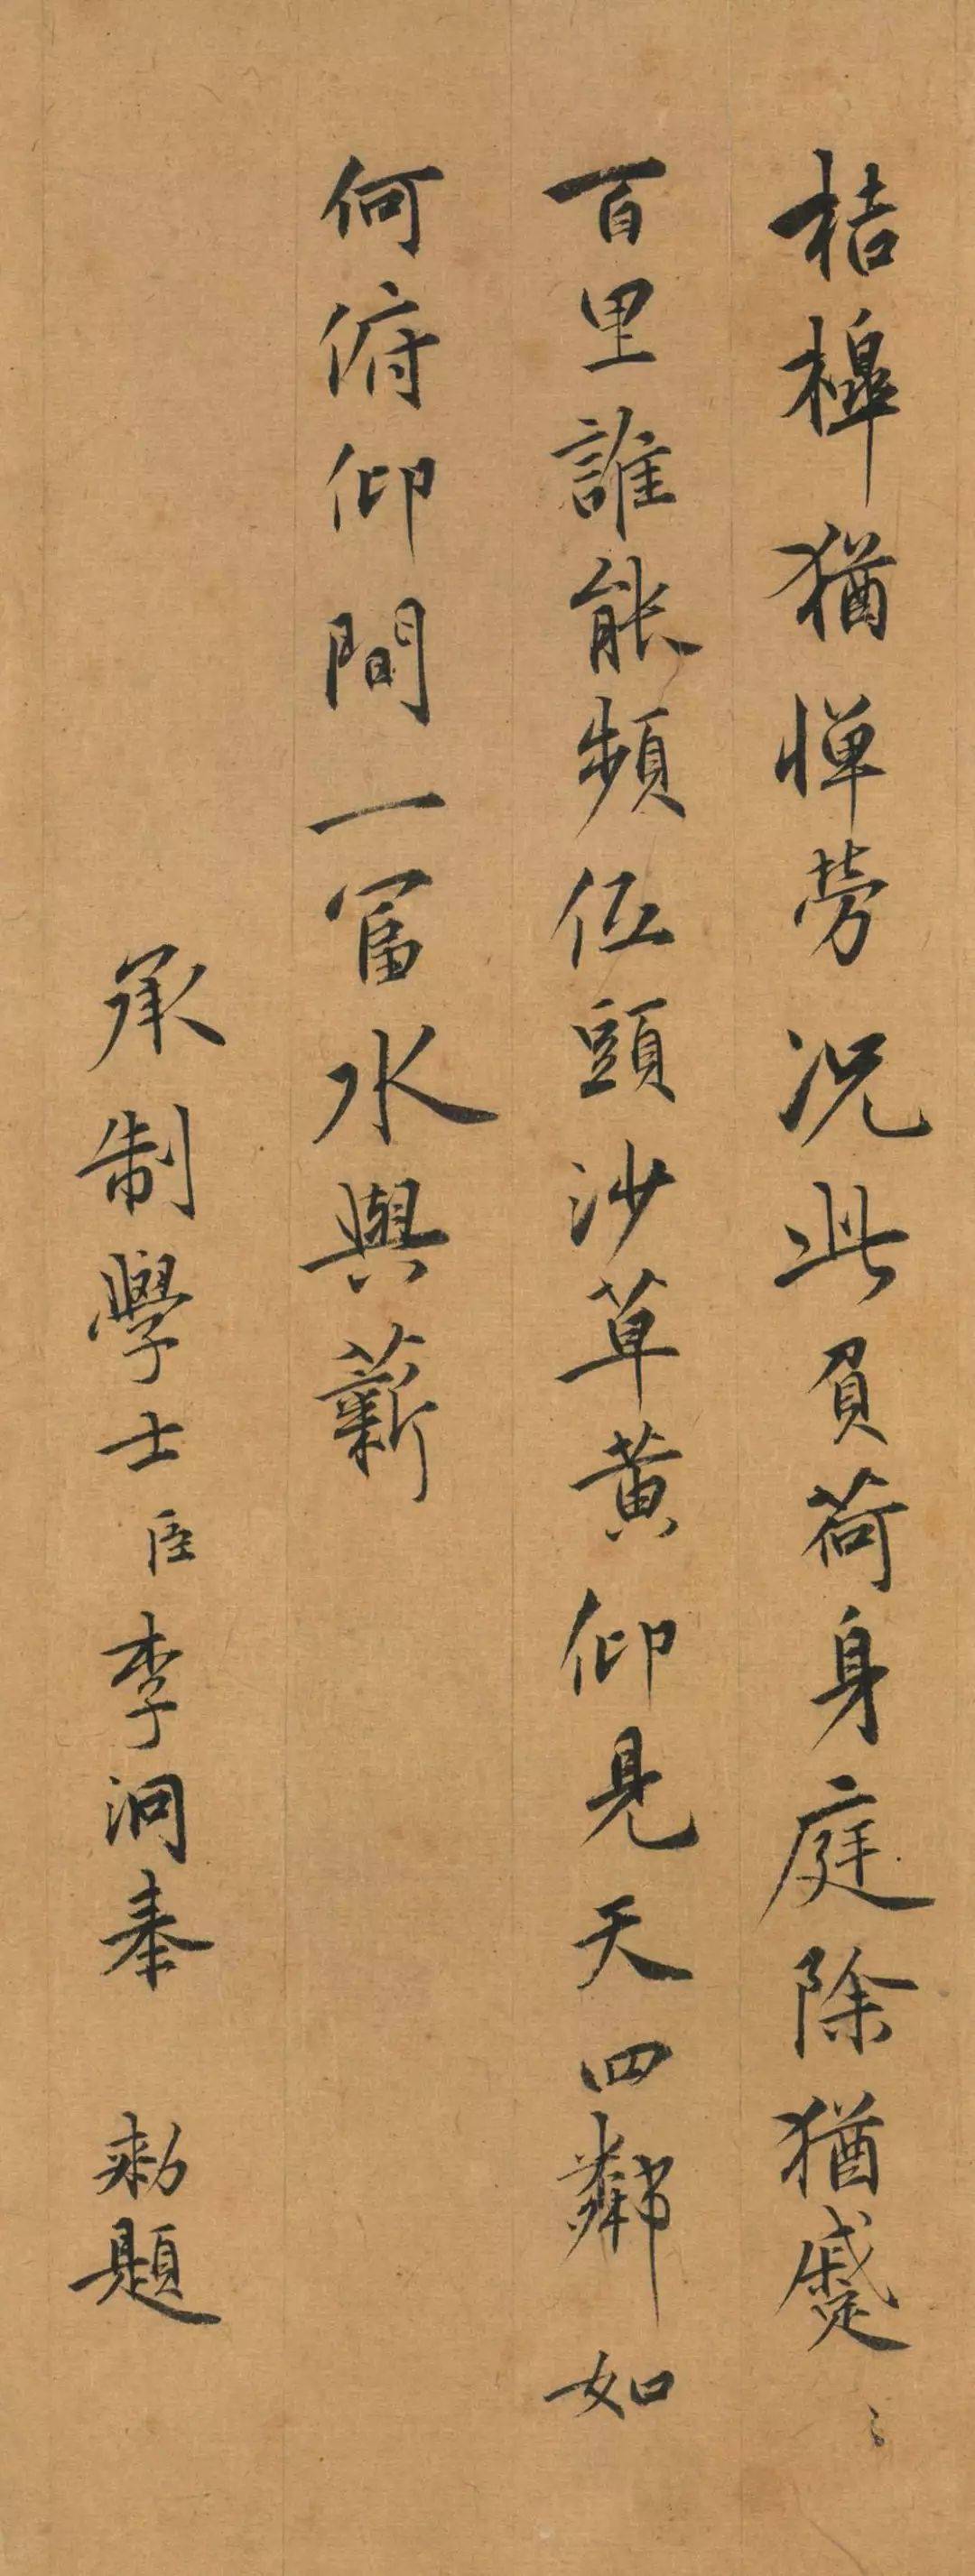 桔槹猶惮劳况此負荷身庭除猶蹙〻
百里誰能頻低頭沙草黃仰見天四鄰如
何俯仰間一富水與薪
承制學士臣李泂奉 勑題